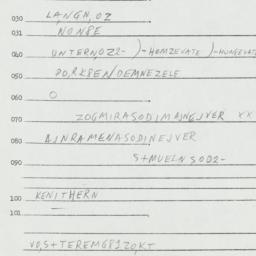 030 LANGN,OZ
031 NONPE
040 UNTERN,OZ2- )-HOMZEVATE )-HUNGEVATE
050 PO,RKBEN/OEMNEZELE
060 O
070 ZOGMIRASODIMAJNEJVER XX
080 AJNRAMENASODINEJVER
090 S+MUELNSOD2-
100 KENITHERN
101
VO,S+TEREMG81ZO,KT